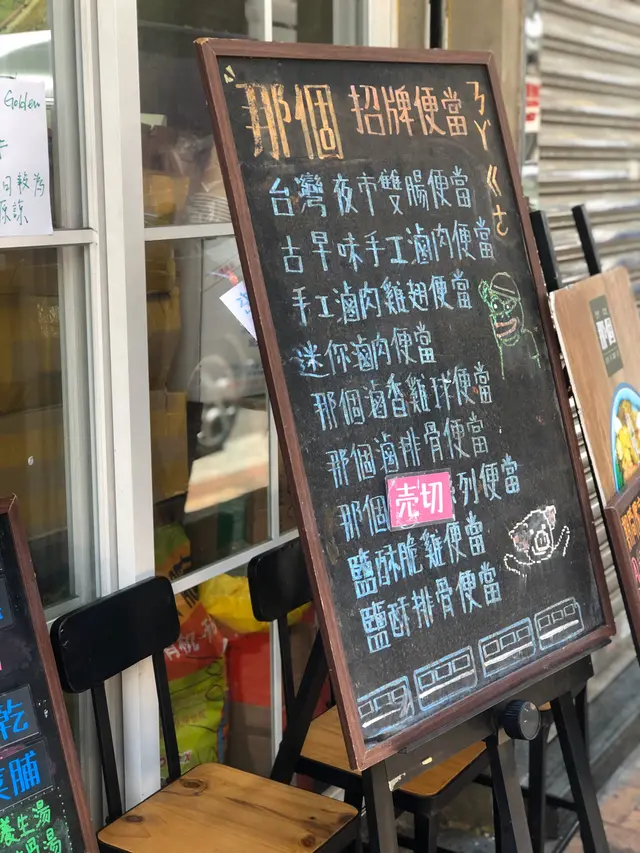 Golden
那個 招牌便當
ㄋㄚˋㄍㄜˊ
台灣夜市雙腸便當
古早味手工滷肉便當
手工滷肉雞翅便當
迷你滷肉便當
那個滷香雞球便當
那個滷排骨便當
那個 売切 系列便當
鹽酥脆雞便當
鹽酥排骨便當
那個
乾
脯
養生湯
湯